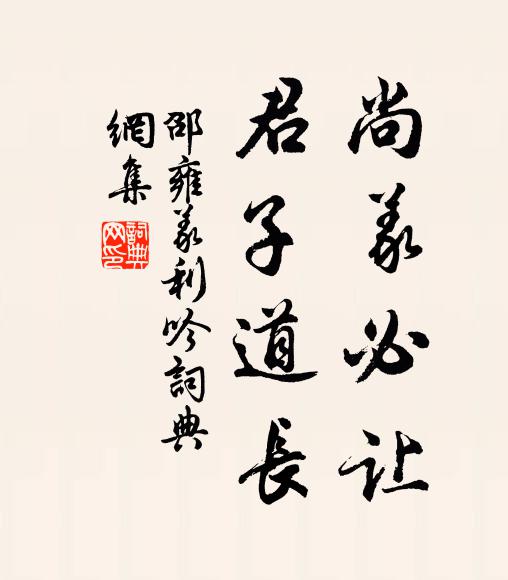 尚義必让
君子道長
邵雍義利吟詞典
網集
詞典
网印